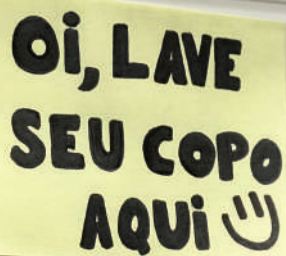 Oi, LAVE
SEU COPO
AQUi